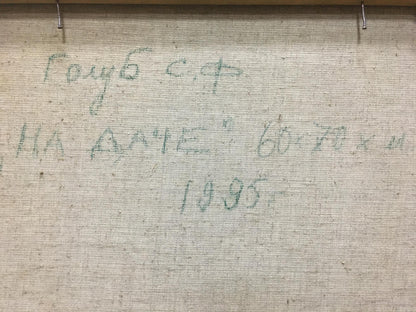 Голуб С.Ф
"НА ДАЧЕ" 60х70 х.м
1995г